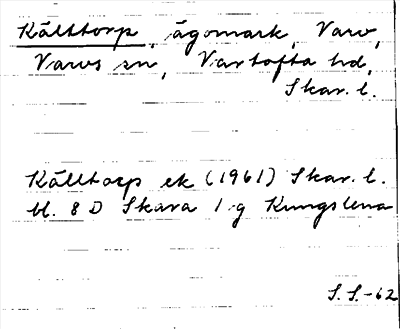 Källtorp, ägomark, Varv,
Varvs sn, Vartofta hd,
Skar. l.
Källtorp ek (1961) Skar. l.
bl. 8 D Skara 1 g Kungslena
S.S.-62